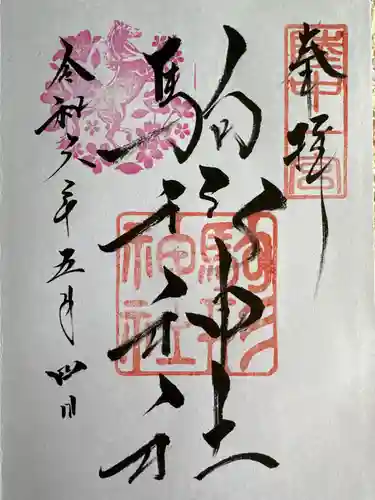 奉拝
陸中一宮
駒形神社
駒形神社
令和六年五月四日